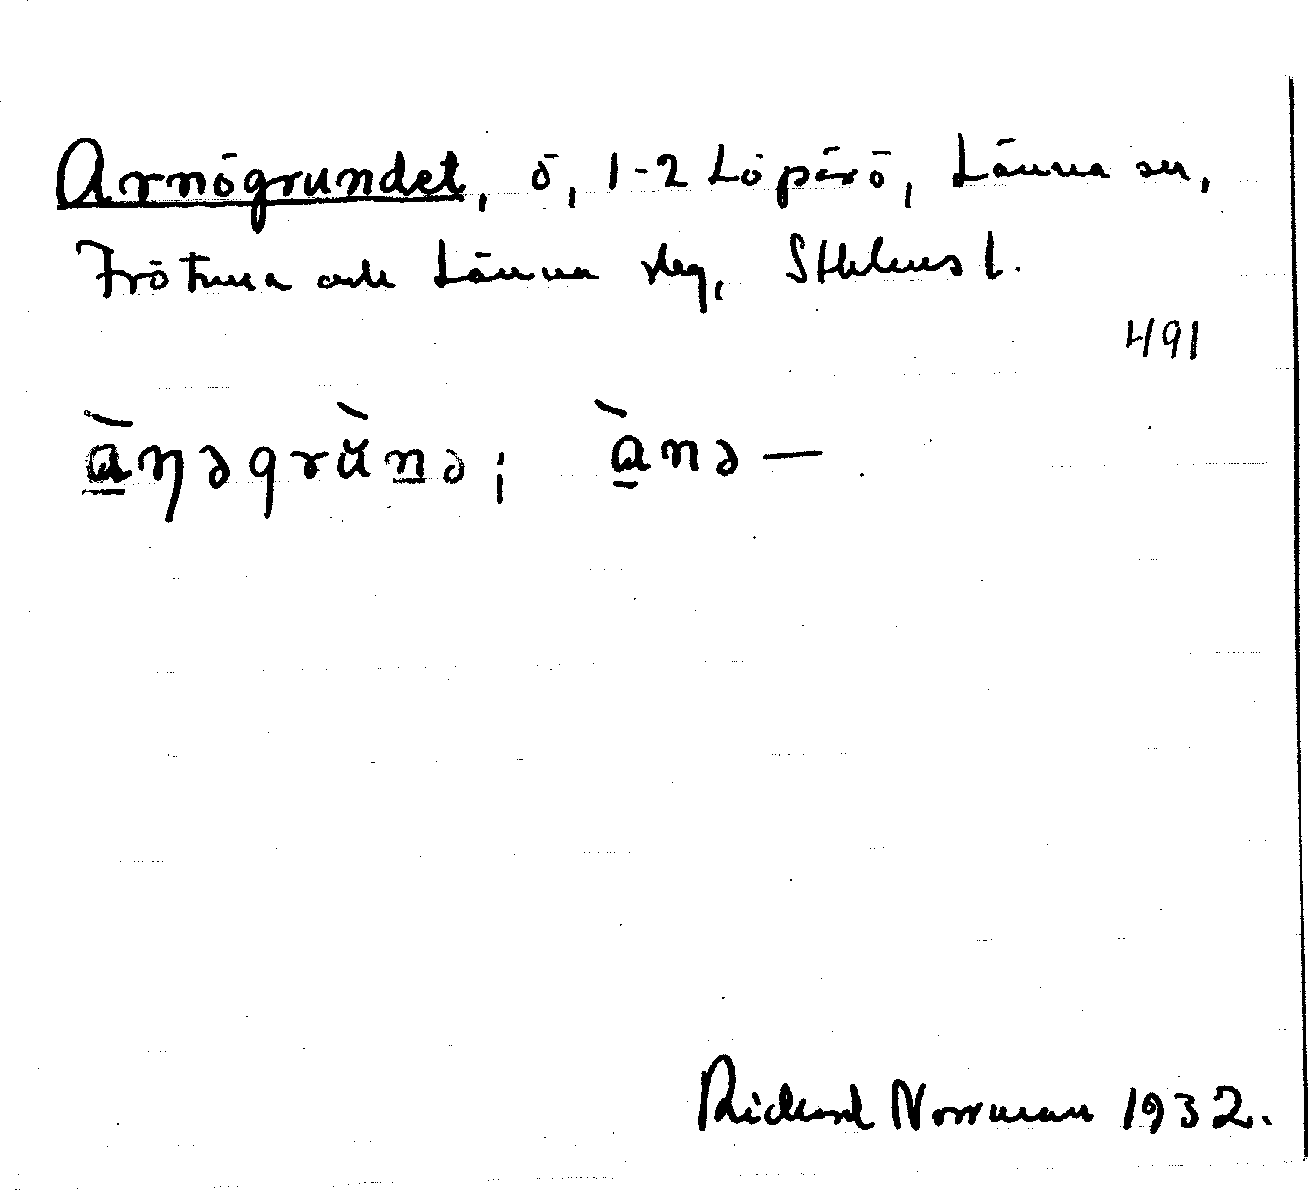 Arnögrundet, ö, 1-2 Löparö, Länna sn,
Frötuna och Länna slg, Sthlms l.
491
ànəgrùnə; ànə—
Rickard Norrman 1932.